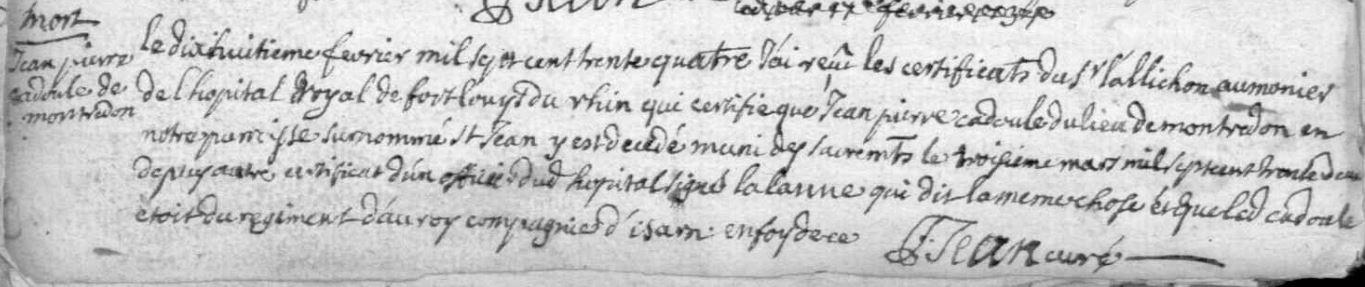 mort
Jean pierre
cadoule de
montredon
le dixhuitieme fevrier mil sept cent trente quatre J'ai reçû les certificats du Sr Vallichon aumonier
de l'hopital Royal de fort louys du rhin qui certifie que Jean pierre cadoule du lieu de montredon en
notre parroisse surnommé St Jean y est decedé muni des sacremts le troisieme mars mil sept cent trente deux
de plus autre certificat d'un officier dud hopital signé lalanne qui dit la meme chose et que led cadoule
etoit du regiment d'auroy compagnie d'isarn. en foy de ce
Jean curé